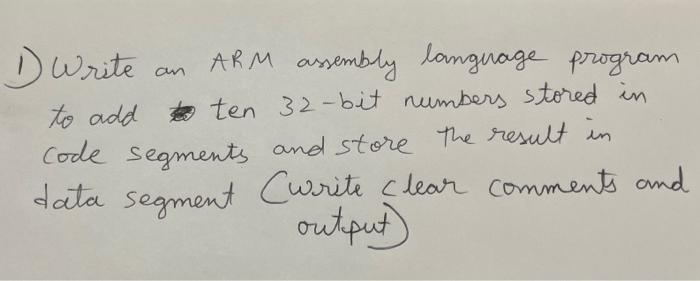 1) Write an ARM assembly language program
to add ten 32-bit numbers stored in
code segments and store the result in
data segment (write clear comments and
output)